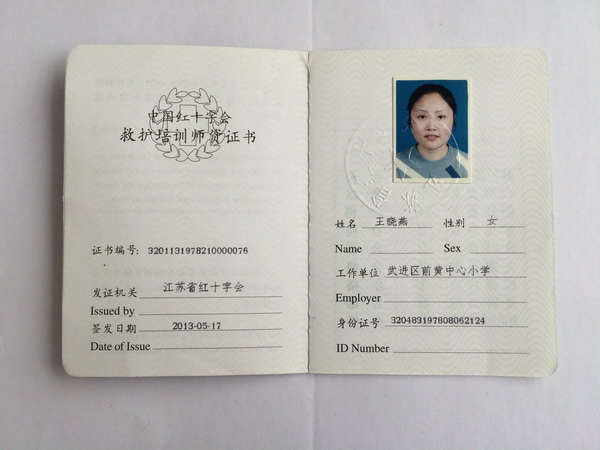 中国红十字会
救护培训师资证书
证书编号: 3201131978210000076
发证机关 江苏省红十字会
Issued by
签发日期 2013-05-17
Date of Issue
姓名 王晓燕 性别 女
Name Sex
工作单位 武进区前黄中心小学
Employer
身份证号 320483197808062124
ID Number